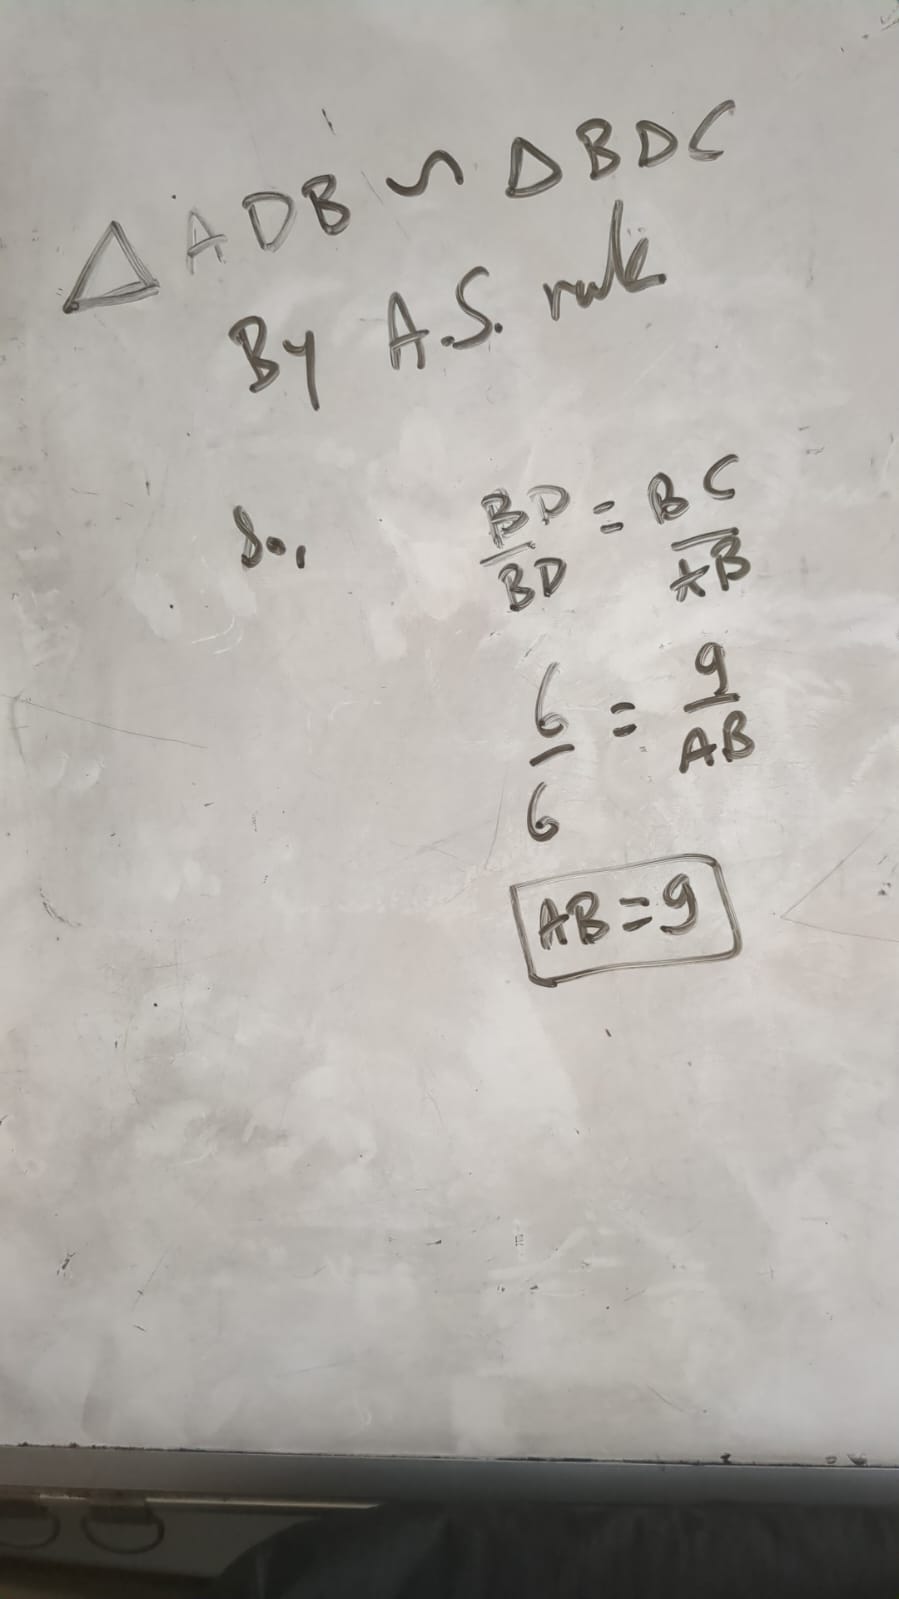 △ADB ∽ △BDC
By A.S. rule
So,
BD/BD = BC/AB
6/6 = 9/AB
AB=9